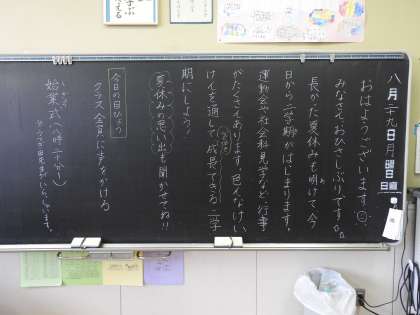 八月二十九日月曜日
日直
おはようございます。
みなさんおひさしぶりです。
長かった夏休みも明けて今
日から二学期がはじまります。
運動会や社会科見学など、行事
がたくさんあります。色々なけい
けんを通して成長できる二学
期にしよう!
夏休みの思い出も聞かせてね!!
今日の目ひょう
クラス全員に声をかける
始業式(八時二十分〜)
先生がいらっしゃいます。